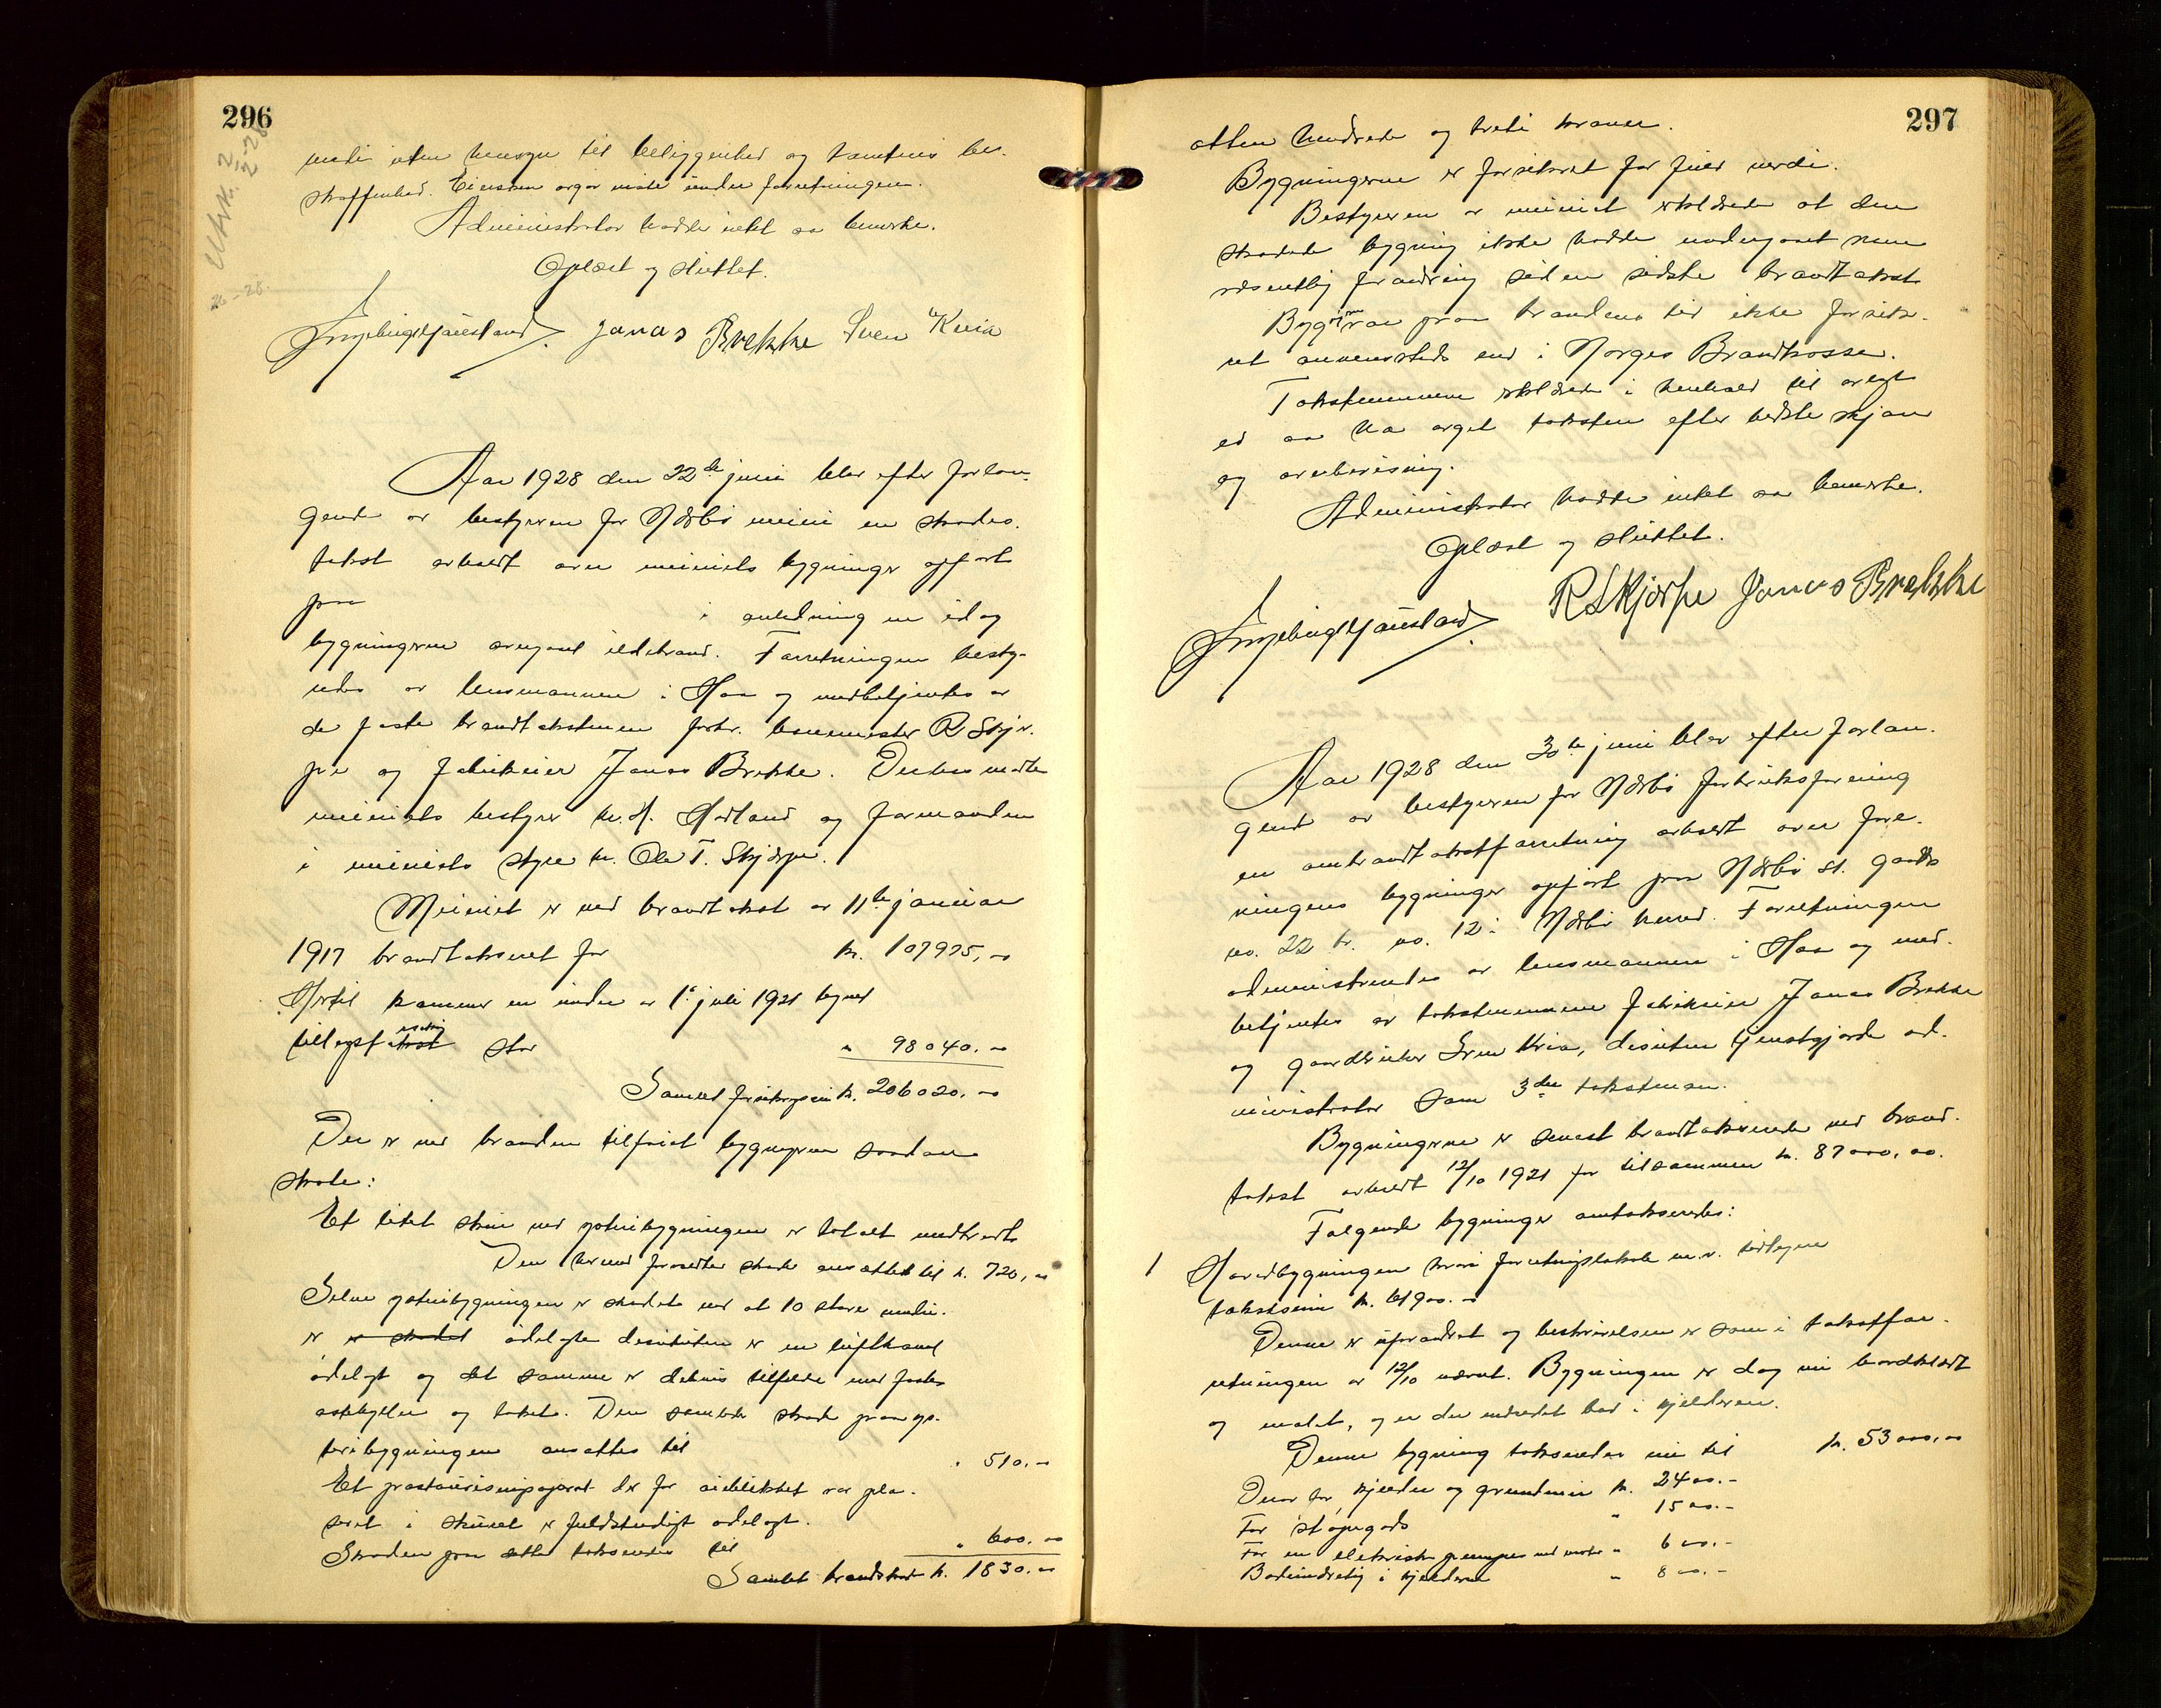 296
Utsk. 2/2-28
26-28.
verdi uten hensyn til beliggenhed og tomtens be-
skaffenhed. Eiersam avgav møte under forretningen.
Administrator hadde intet aa bemerke.
Oplæst og sluttet.
Jonas Brekke Sven Kvia
Aar 1928 den 22de juni blev efter forlan-
gende av bestyreren for Nærbø meieri en skades-
takst avholdt over meieriets bygninger opført
paa
i anledning en idag
bygningerne overgaaet ildebrand. Forretningen besty-
redes av lensmannen i Haa og medbetjentes av
de faste brandtakstmenn forhv. baneme­ster R Skjær-
pe og fabrikeier Jonas Brekke. Desuten møtte
meieriets bestyrer hr. H. Hadland og formanden
i meieriets styre hr. Ole T. Skjærpe.
Meieriet er ved brandtakst av 11te januar
1917 brandtaksert for kr. 107975,00
Hertil kommer en under av 1ste juli 1921 tegnet
tillægsforsikring stor " 98040.00
Samlet forsikringssum kr. 206020.00
Der er ved branden tilføiet bygningerne saadan
skade:
Et litet skur ved ysteribygningen er totalt nedbrændt
Den herved forvoldte skade ansættes til kr. 720,00
Selve ysteribygningen er skadet ved at 10 store ruter
er er skadet ødelagte desuten er en luftkanal
ødelagt og det samme er delvis tilfelde med
og taket. Den samlede skade paa ys-
teribygningen ansættes til " 510.00
Et pasteuriseringsapparat der for øieblikket var pla-
sert i skuret er fuldstendigt ødelagt.
Skaden paa dette takseres til " 600.00
Samlet brandskade kr. 1830.00
297
atten hundrede og treti kroner.
Bygningerne er forsikret for fuld verdi.
Bestyreren av meieriet erklærede at den
skadede bygning ikke hadde undergaaet noen
væsentlig forandring siden sidste brandtakst
Bygningen var paa brandens tid ikke forsik-
ret annensteds end i Norges Brandkasse.
Takstmennene erklærede i henhold til avlagt
ed aa ha avgit taksten efter bedste skjøn
og overbevisning.
Administrator hadde intet aa bemerke.
Oplæst og sluttet.
R Skjærpe Jonas Brekke
Aar 1928 den 30te juni blev efter forlan-
gende av bestyreren for Nærbø forbruksforening
en ombrandtakstforretning avholdt over fore-
ningens bygninger opført paa Nærbø st. gaards
no. 22 br. no. 12 i Nærbø herred. Forretningen
administreredes av lensmannen i Haa og med-
betjentes av takstmennene fabrikeier Jonas Brekke
og gaardbruker Sven Kvia, desuten tjenstgjorde ad-
ministrator som 3die takstmann.
Bygningerne er senest brandtakserede ved brand-
takst avholdt 12/10 1921 for tilsammen kr. 87000,00.
Følgende bygninger omtakseredes:
1 Hovedbygningen hvori forretningslokale m.v. tidligere
takstsum kr. 61900.00
Denne er uforandret og beskrivelsen er som i takstfor-
retningen av 12/10 nævnt. Bygningen er dog nu bordklædt
og malet, og er der indredet bad i kjelderen.
Denne bygning takseredes nu til kr. 53000,00
Derav for kjelder og grundmur kr. 2400.-
For støpegods " 1500.-
For en elektrisk pumpe med motor " 600.-
Badeindretning i kjelderen " 800.-